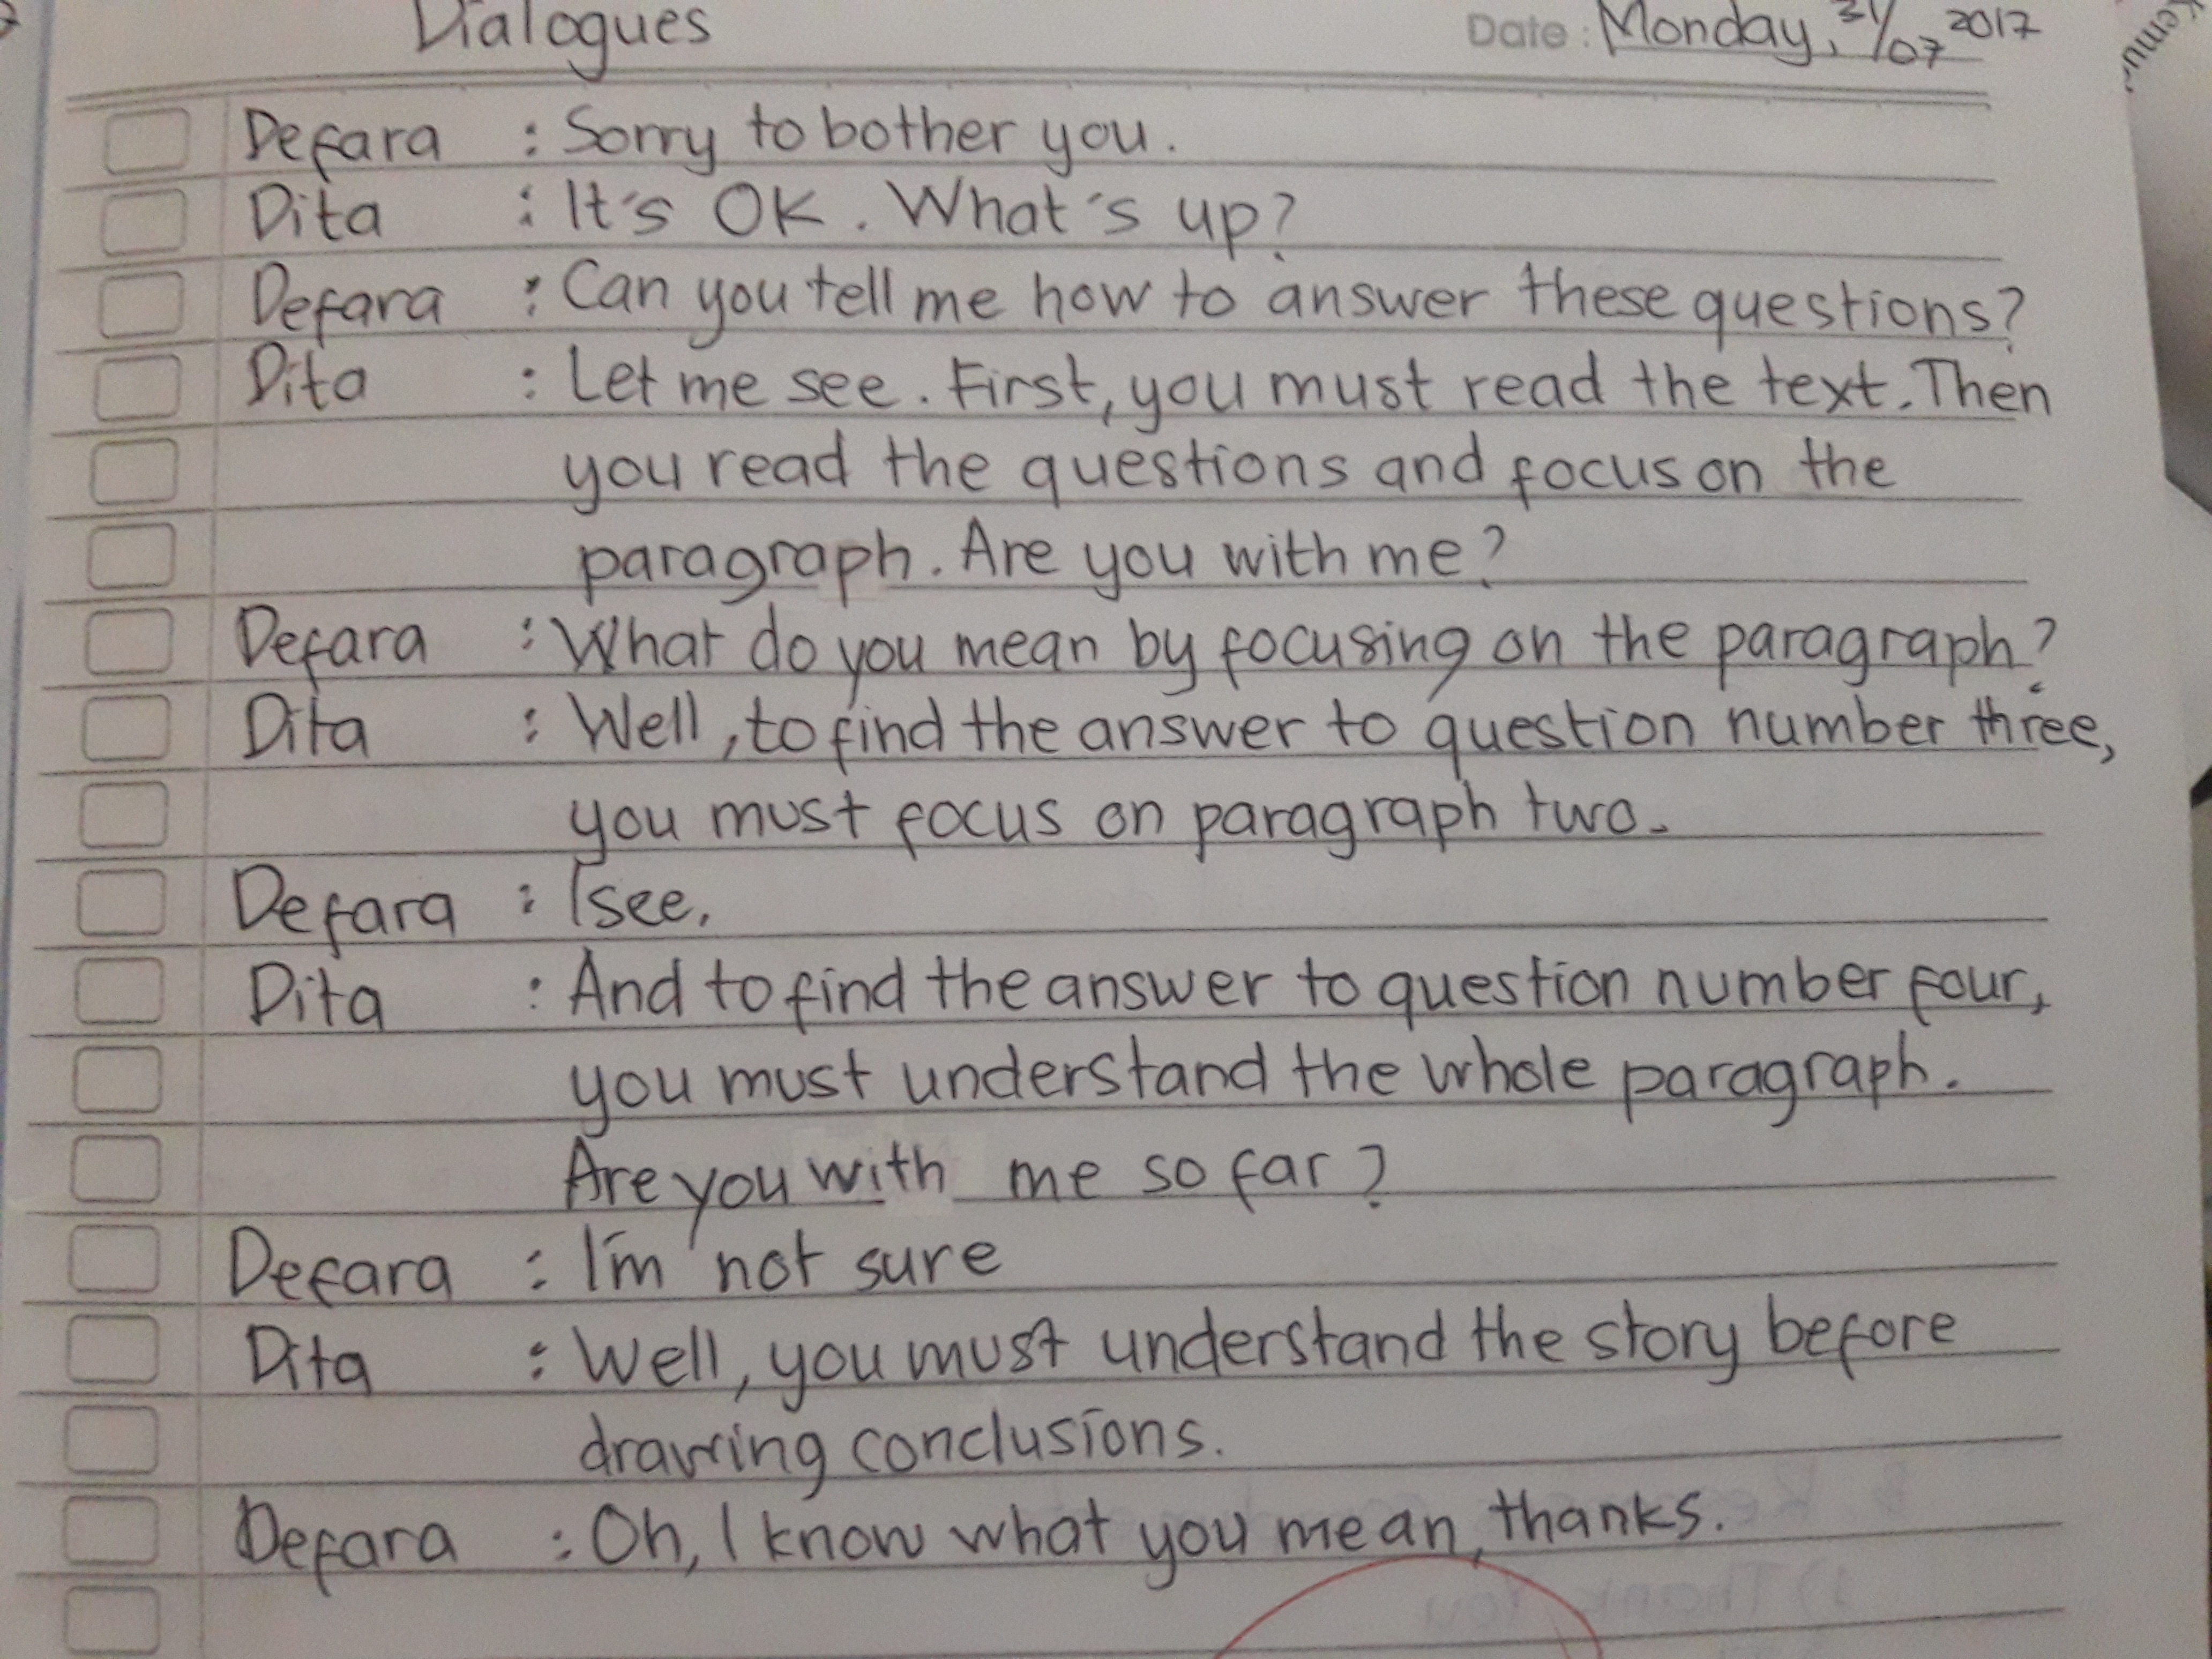 Dialogues
Date : Monday, 31/07 2017
Defara : Sorry to bother you.
Dita : It's OK. What's up?
Defara : Can you tell me how to answer these questions?
Dita : Let me see. First, you must read the text. Then
you read the questions and focus on the
paragraph. Are you with me?
Defara : What do you mean by focusing on the paragraph?
Dita : Well, to find the answer to question number three,
you must focus on paragraph two.
Defara : I see.
Dita : And to find the answer to question number four,
you must understand the whole paragraph.
Are you with me so far?
Defara : I'm not sure
Dita : Well, you must understand the story before
drawing conclusions.
Defara : Oh, I know what you mean, thanks.